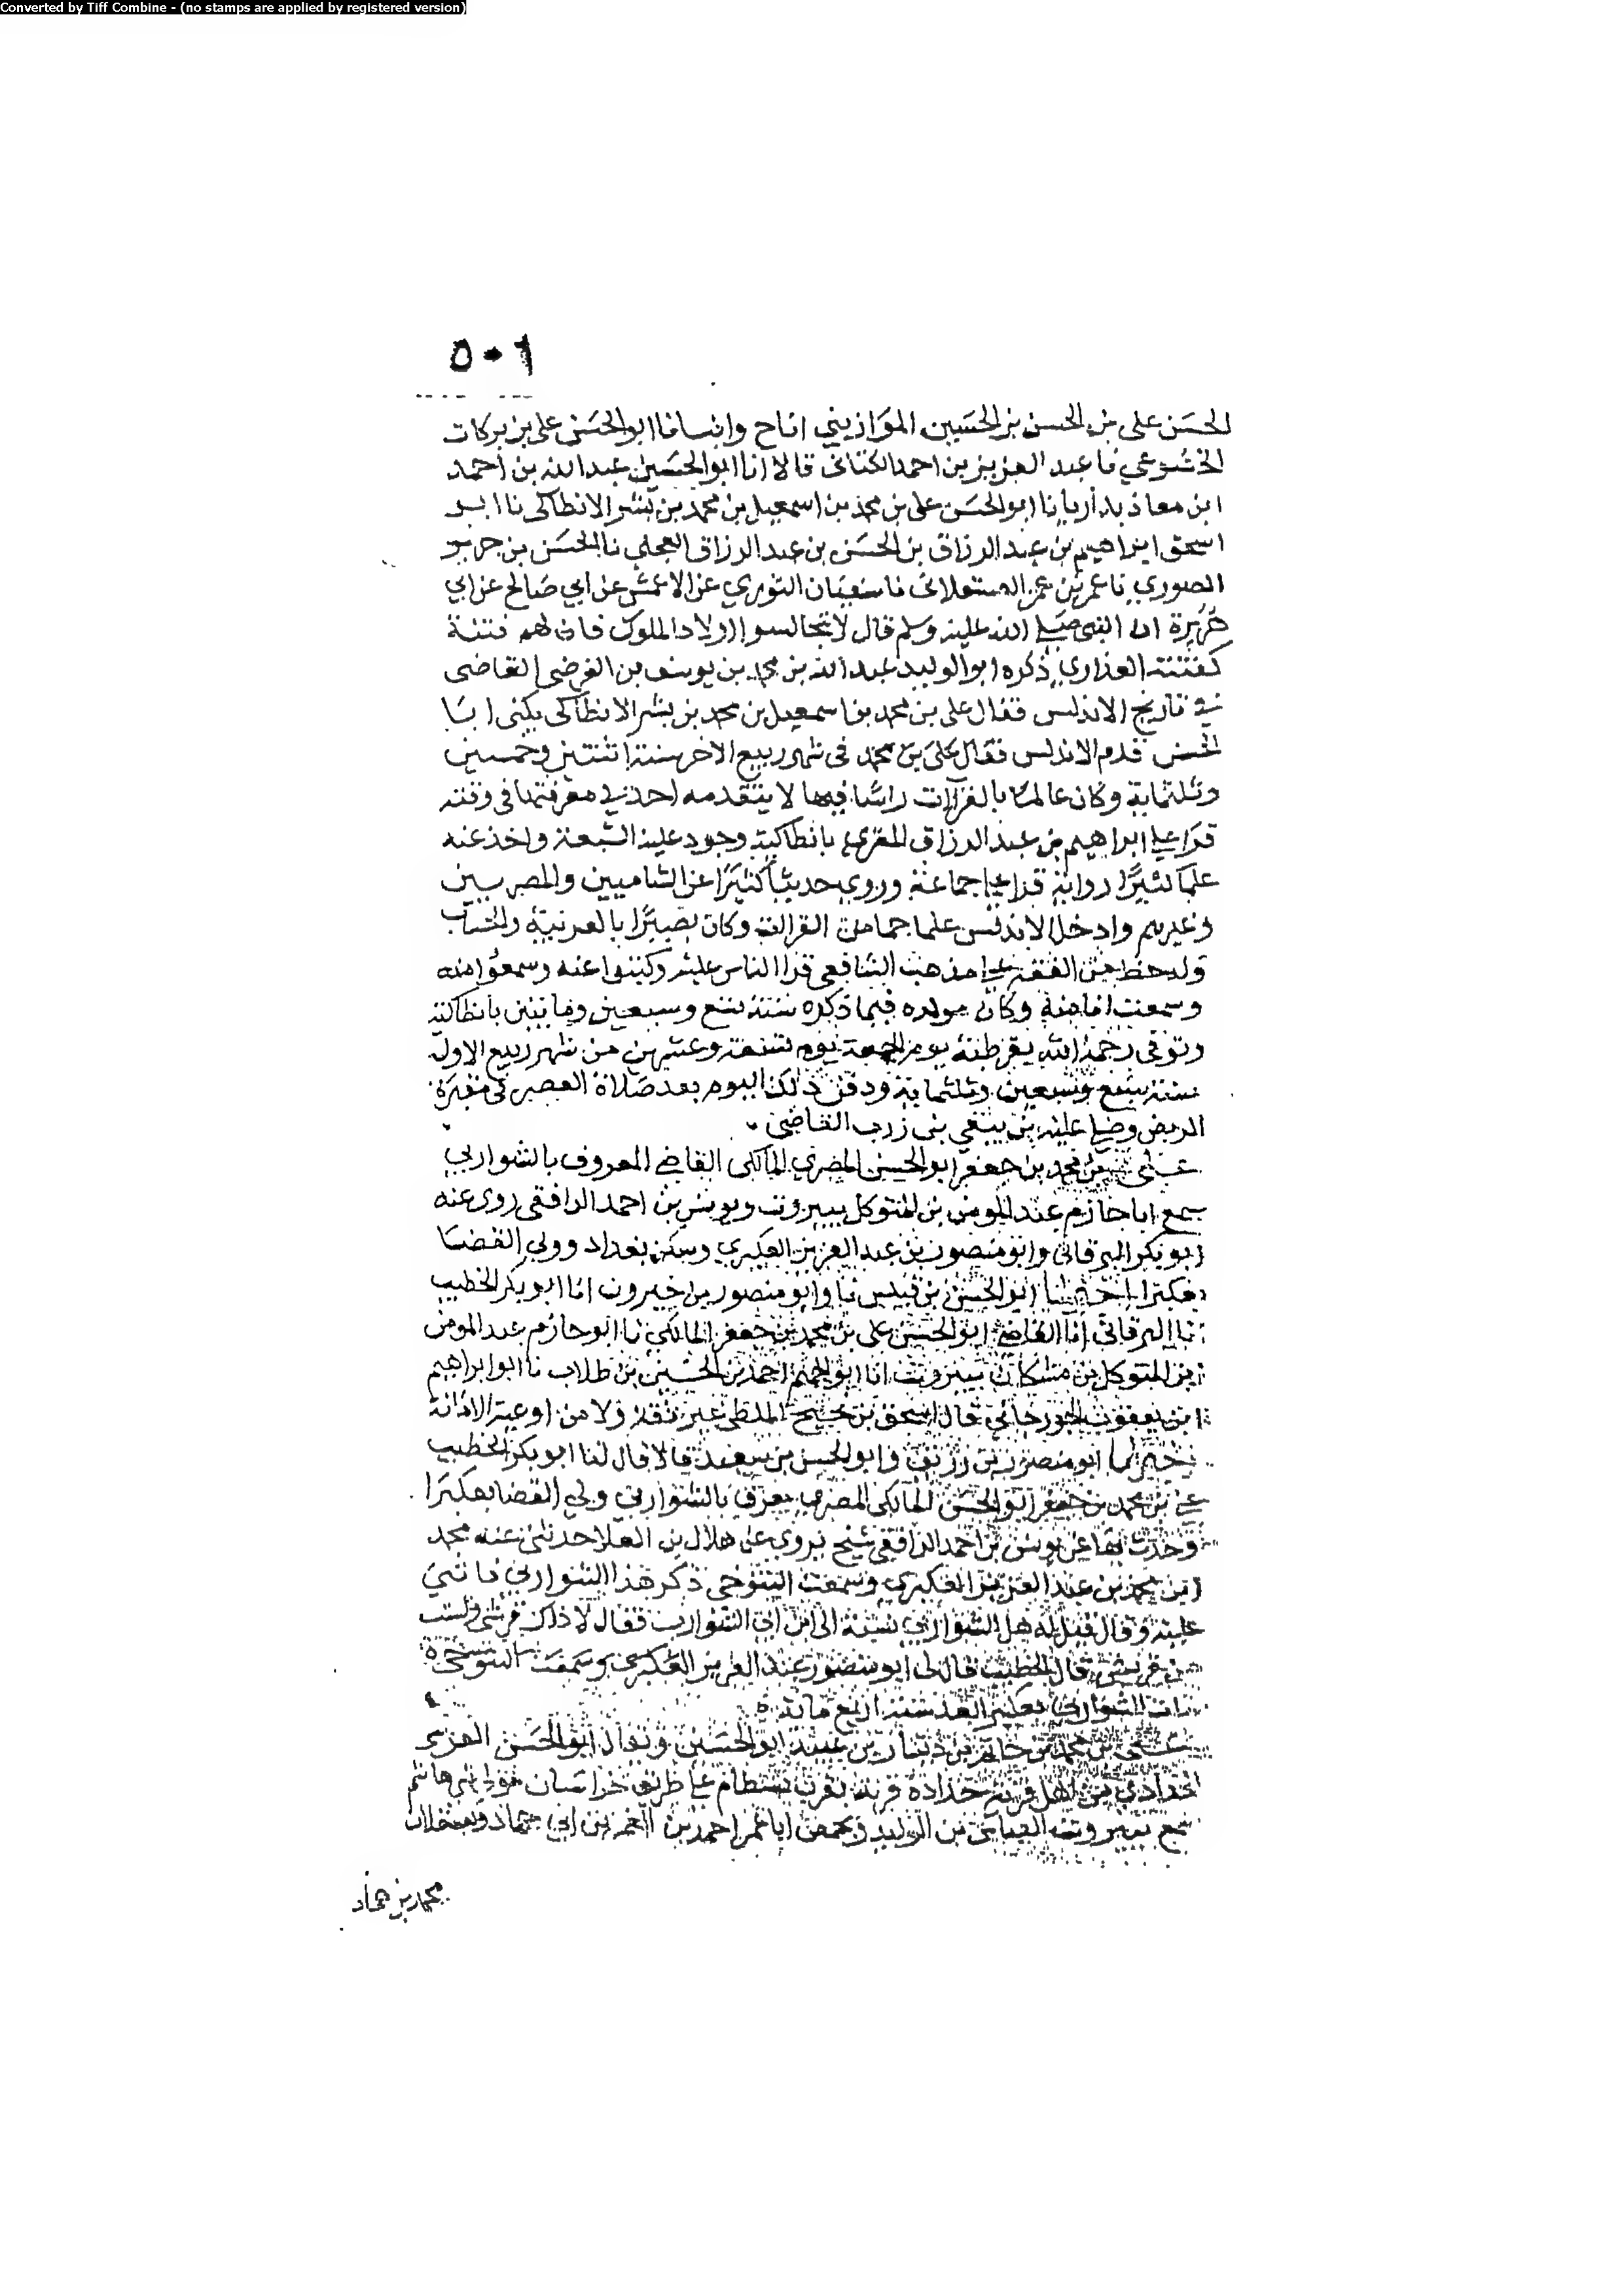 Converted by Tiff Combine - (no stamps are applied by registered version)
٥٠٦
الحسن على بن الحسن بن الحسين الموازيني انا ح وانبانا ابو الحسن على بن بركات
الخشوعي نا عبد العزيز بن احمد الكتانى قالا انا ابو الحسين عبد الله بن احمد
ابن معاذ بداريا نا ابو الحسن على بن محمد بن اسمعيل بن محمد بن بشر الانطاكى نا ابو
اسحق ابراهيم بن عبد الرزاق بن الحسن بن عبد الرزاق العجلي نا الحسن بن جرير
الصوري نا عمر بن عمرو العسقلانى نا سفيان الثوري عن الاعمش عن ابي صالح عن ابي
هريرة ان النبى صلى الله عليه وسلم قال لا تجالسوا اولاد الملوك فان لهم فتنة
كفتنة العذارى ذكره ابو الوليد عبد الله بن محمد بن يوسف بن الفرضى القاضى
في تاريخ الاندلس فقال على بن محمد بن اسمعيل بن محمد بن بشر الانطاكى يكنى ابا
الحسن قدم الاندلس فقال على بن محمد فى شهر ربيع الاخر سنة اثنتين وخمسين
وثلثماية وكان عالما بالقراات راسا فيها لا يتقدمه احد في معرفتها فى وقته
قرا على ابراهيم بن عبد الرزاق المقري بانطاكية وجود عليه السبعة واخذ عنه
علما كثيرا رواية قرا على جماعة وروى حديثا كثيرا عن الشاميين والمصريين
وغيرهم وادخل الاندلس علما جما من القراات وكان بصيرا بالعربية والحساب
وله حظ من الفقه على مذهب الشافعى قرا الناس عليه وكتبوا عنه وسمعوا منه
وسمعت انا منه وكان مولده فيما ذكره سنة تسع وسبعين وماتين بانطاكية
وتوفى رحمه الله بقرطبة يوم الجمعة يوم تسعة وعشرين من شهر ربيع الاول
سنة سبع وسبعين وثلثماية ودفن ذلك اليوم بعد صلاة العصر فى مقبرة
الربض وصلى عليه بن يبقي بن زرب القاضى
على بن محمد بن جعفر ابو الحسن المصري المالكى القاضي المعروف بالشواربي
سمع ابا حازم عبد المومن بن المتوكل ببيروت ويونس بن احمد الرافقى روى عنه
ابو بكر البرقانى وابو منصور بن عبد العزيز العكبري وسكن بغداد وولي القضا
بعكبرا اخبرنا ابو الحسن بن قبيس نا وابو منصور بن خيرون انا ابو بكر الخطيب
انا البرقانى انا القاضي ابو الحسن على بن محمد بن جعفر المالكي نا ابو حازم عبد المومن
ابن المتوكل بن مشكان ببيروت انا ابو الجهم احمد بن الحسين بن طلاب نا ابو ابراهيم
ابن يعقوب الجوزجاني قال اسحق بن نجيح الملطى غير ثقة ولا من اوعية الامانة
اخبرنا ابو منصور بن زريق وابو الحسن بن سعيد قالا قال لنا ابو بكر الخطيب
علي بن محمد بن جعفر ابو الحسن المالكى المصري يعرف بالشواربي ولي القضا بعكبرا
وحدث بها عن يونس بن احمد الرافقي شيخ يروى عن هلال بن العلا حدثنى عنه محمد
ابن محمد بن عبد العزيز العكبري وسمعت التنوخي ذكر هذا الشواربي فاثنى
عليه وقال قيل له هل الشواربي نسبة الى ابن ابي الشوارب فقال لا ذاك قرشى ولست
من قريش قال الخطيب قال لى ابو منصور عبد العزيز العكبري وسمعت التنوخى
مات الشواربي بعكبرا بعد سنة اربع ماية
على بن محمد بن حاتم بن دينار بن عبيد ابو الحسين ويقال ابو الحسن
الحدادي من اهل قرية حدادة قرية بقرب بسطام على طريق خراسان مولى بني هاشم
سمع ببيروت العباس بن الوليد وبحمص ابا عمرو احمد بن ابي حماد وبعسقلان
محمد بن حماد